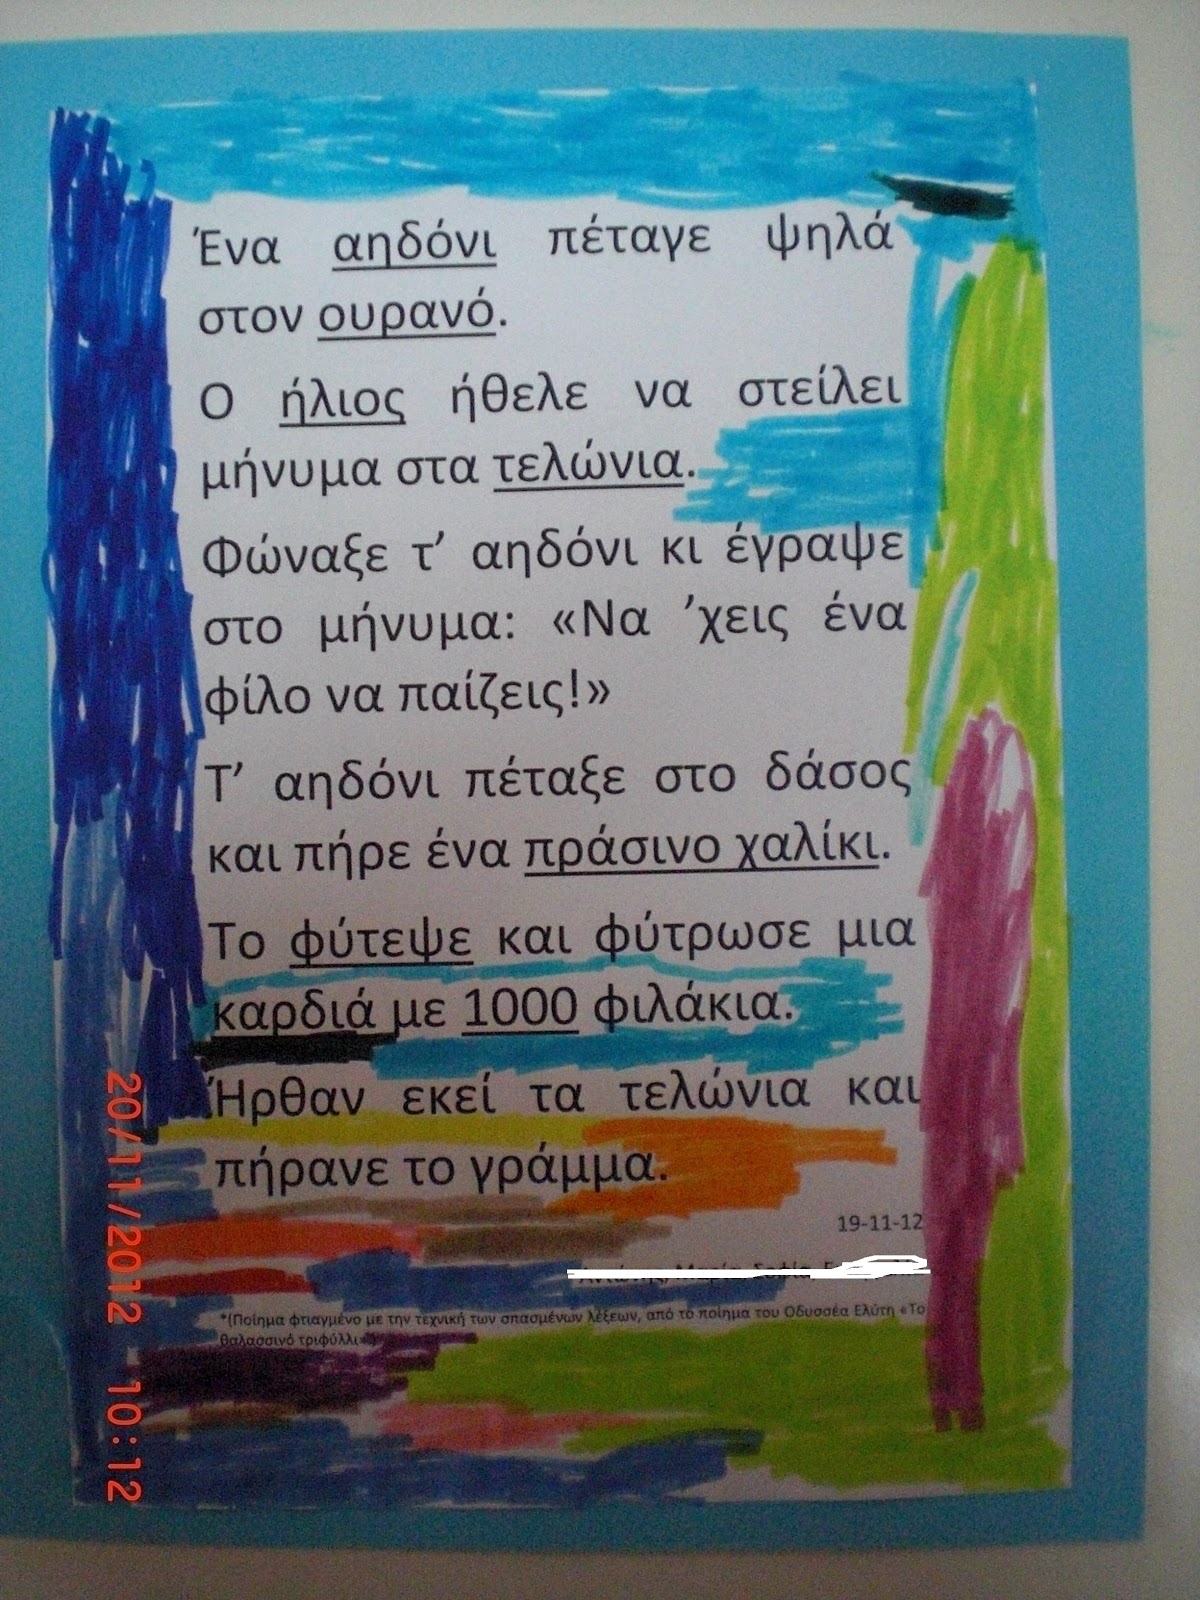 Ένα αηδόνι πέταγε ψηλά
στον ουρανό.
Ο ήλιος ήθελε να στείλει
μήνυμα στα τελώνια.
Φώναξε τ’ αηδόνι κι έγραψε
στο μήνυμα: «Να ’χεις ένα
φίλο να παίζεις!»
Τ’ αηδόνι πέταξε στο δάσος
και πήρε ένα πράσινο χαλίκι.
Το φύτεψε και φύτρωσε μια
καρδιά με 1000 φιλάκια.
Ήρθαν εκεί τα τελώνια και
πήρανε το γράμμα.
19-11-12
*(Ποίημα φτιαγμένο με την τεχνική των σπασμένων λέξεων, από το ποίημα του Οδυσσέα Ελύτη «Το
θαλασσινό τριφύλλι»)
20/11/2012 10:12